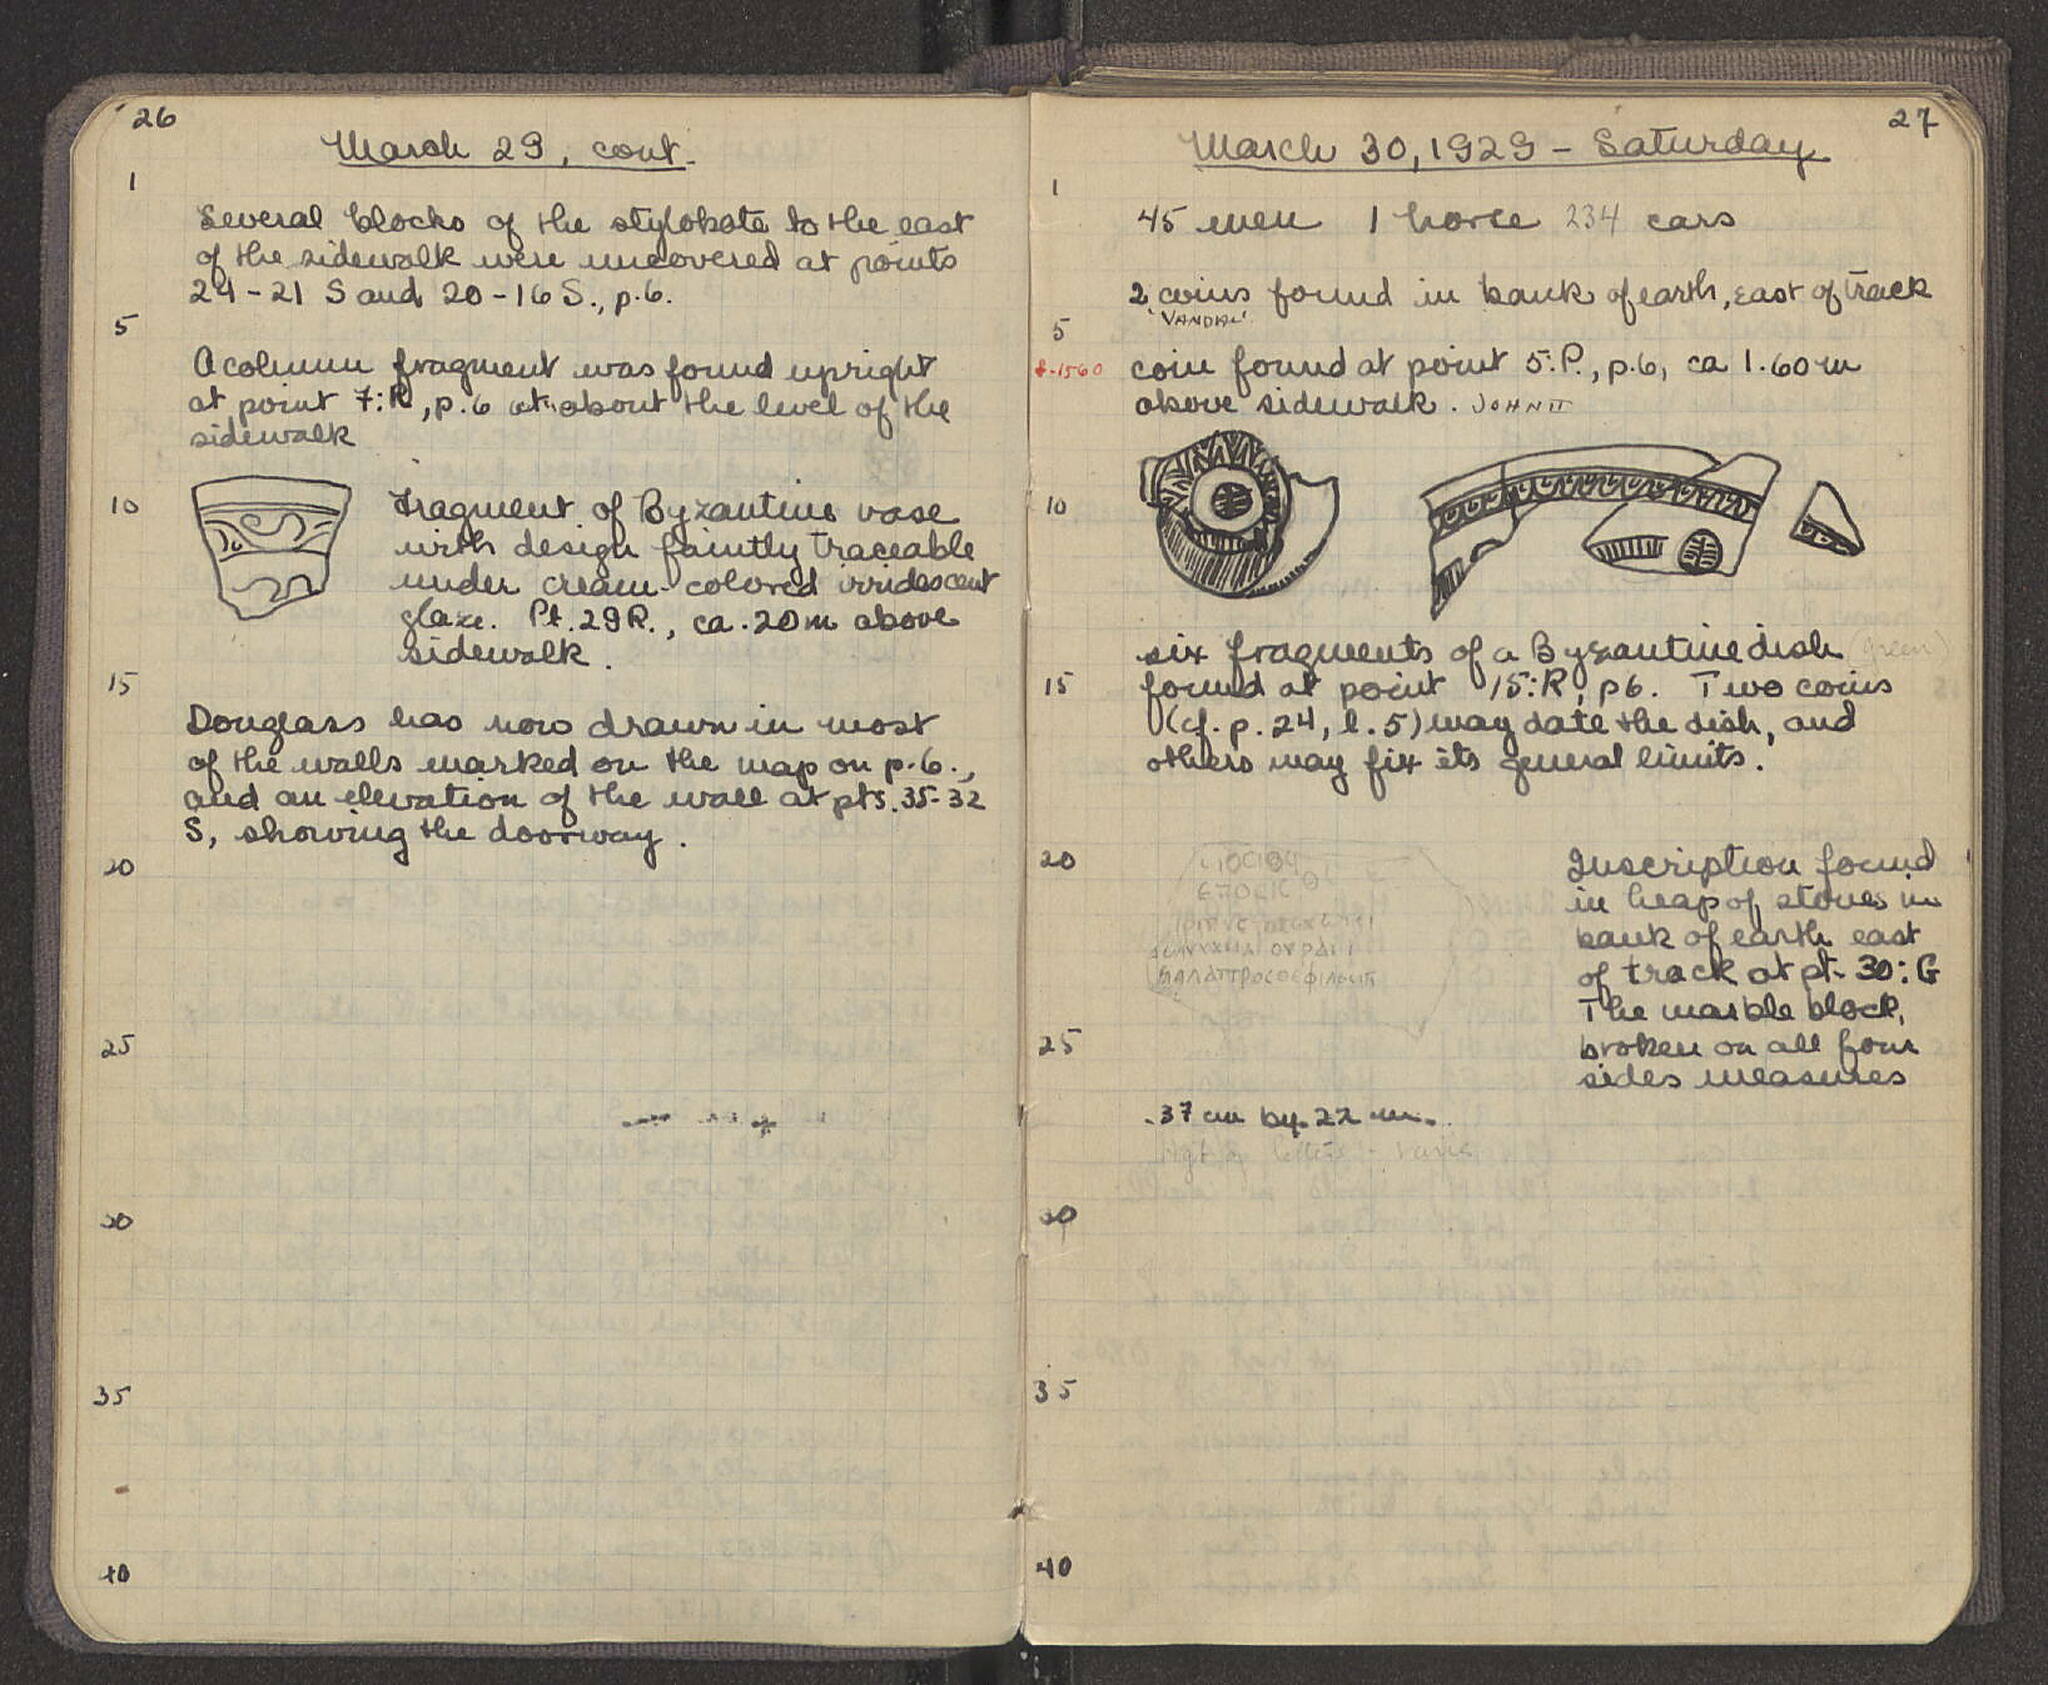 26
March 29, cont.
1
Several blocks of the stylobate to the east
of the sidewalk were uncovered at points
24-21 S and 20-16 S., p.6.
5
A column fragment was found upright
at point 7:R, p.6 at about the level of the
sidewalk
10
Fragment of Byzantine vase
with design faintly traceable
under cream-colored irridescent
glaze. Pt. 29R., ca .20m above
sidewalk.
15
Douglass has now drawn in most
of the walls marked on the map on p.6.,
and an elevation of the wall at pts. 35-32
S, showing the doorway.
20
25
30
35
40
27
March 30, 1929 - Saturday
1
45 men 1 horse 234 cars
2 coins found in bank of earth, east of track
"VANDAL"
5
coin found at point 5:P., p.6, ca 1.60m
above sidewalk. JOHN II
10
six fragments of a Byzantine dish (green)
15
found at point 15:R, p6. Two coins
(cf. p.24, l.5) may date the dish, and
others may fix its general limits.
20
Inscription found
in heap of stones in
bank of earth east
of track at pt. 30:G
The marble block,
25
broken on all four
sides measures
.37 cm by .22 cm.
hgt of letters - varies
30
35
40